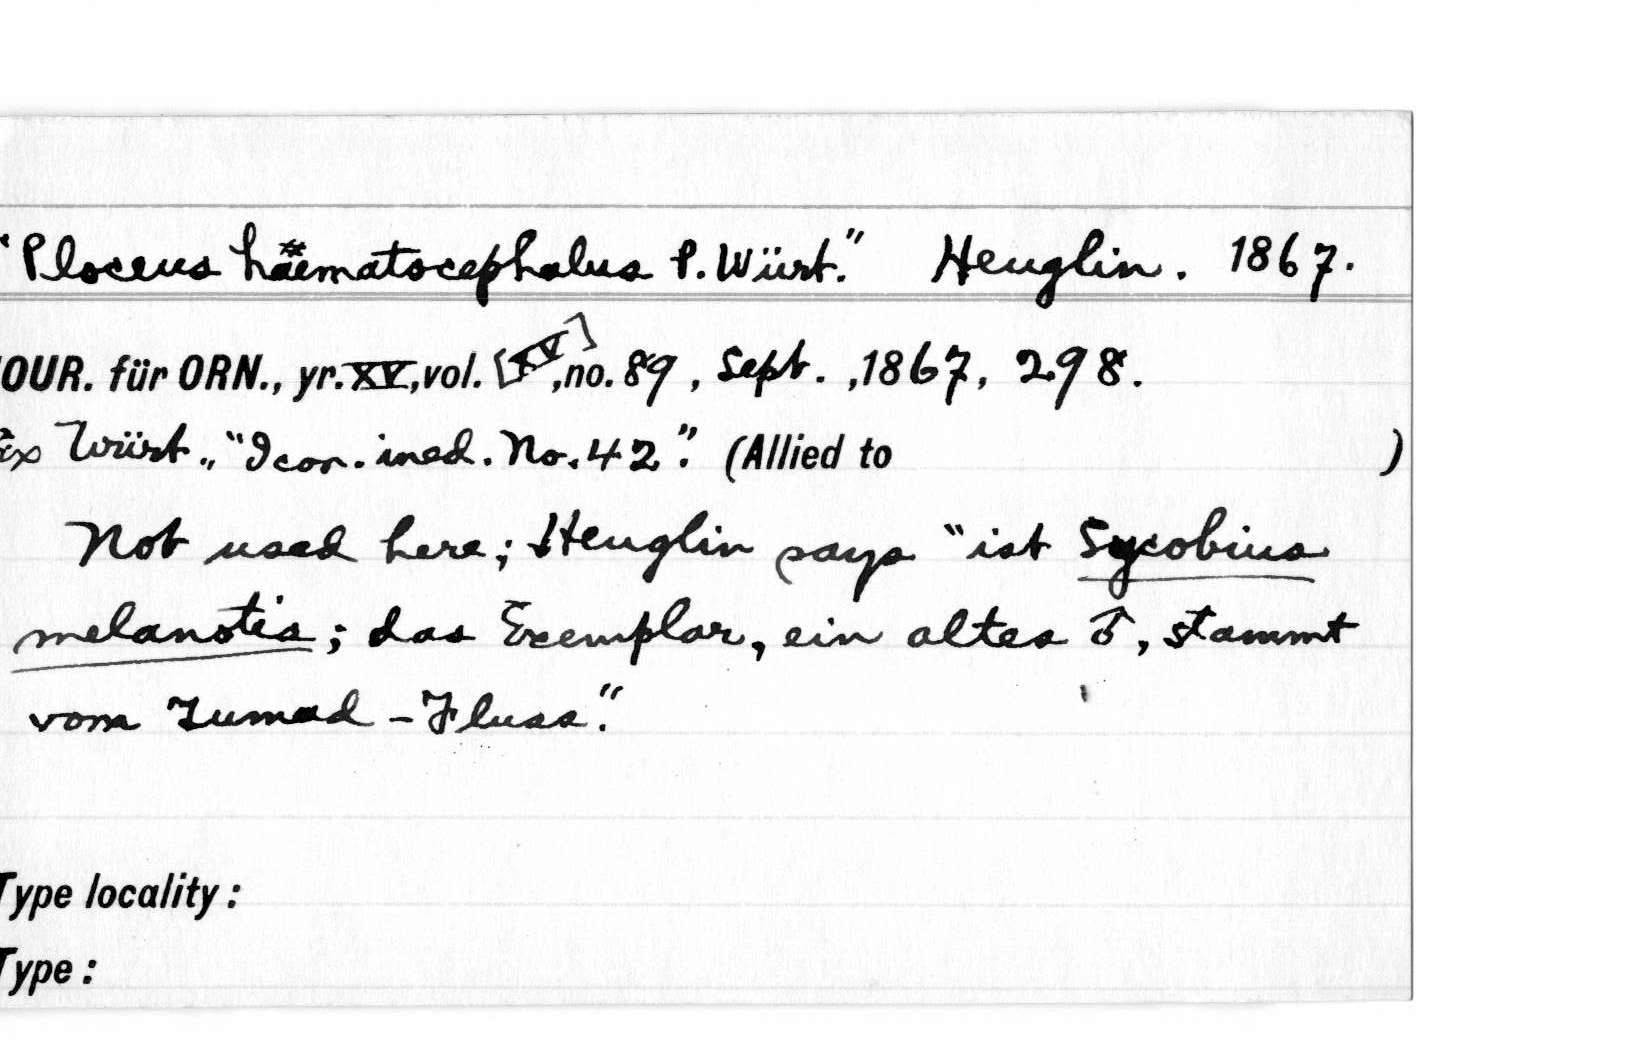 "Ploceus häematocephalus P. Würt." Heuglin. 1867.
JOUR. für ORN., yr. XV, vol. [XV], no. 89, Sept., 1867, 298.
Ex Würt., "Icon. ined. No. 42". (Allied to )
Not used here; Heuglin says "ist Sycobius
melanotis; das Exemplar, ein altes ♂, stammt
vom Jumad-Fluss."
Type locality:
Type: